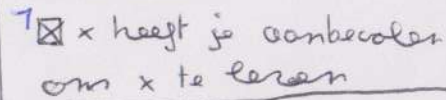 1 ☒ x heeft je aanbevolen
om x te lezen